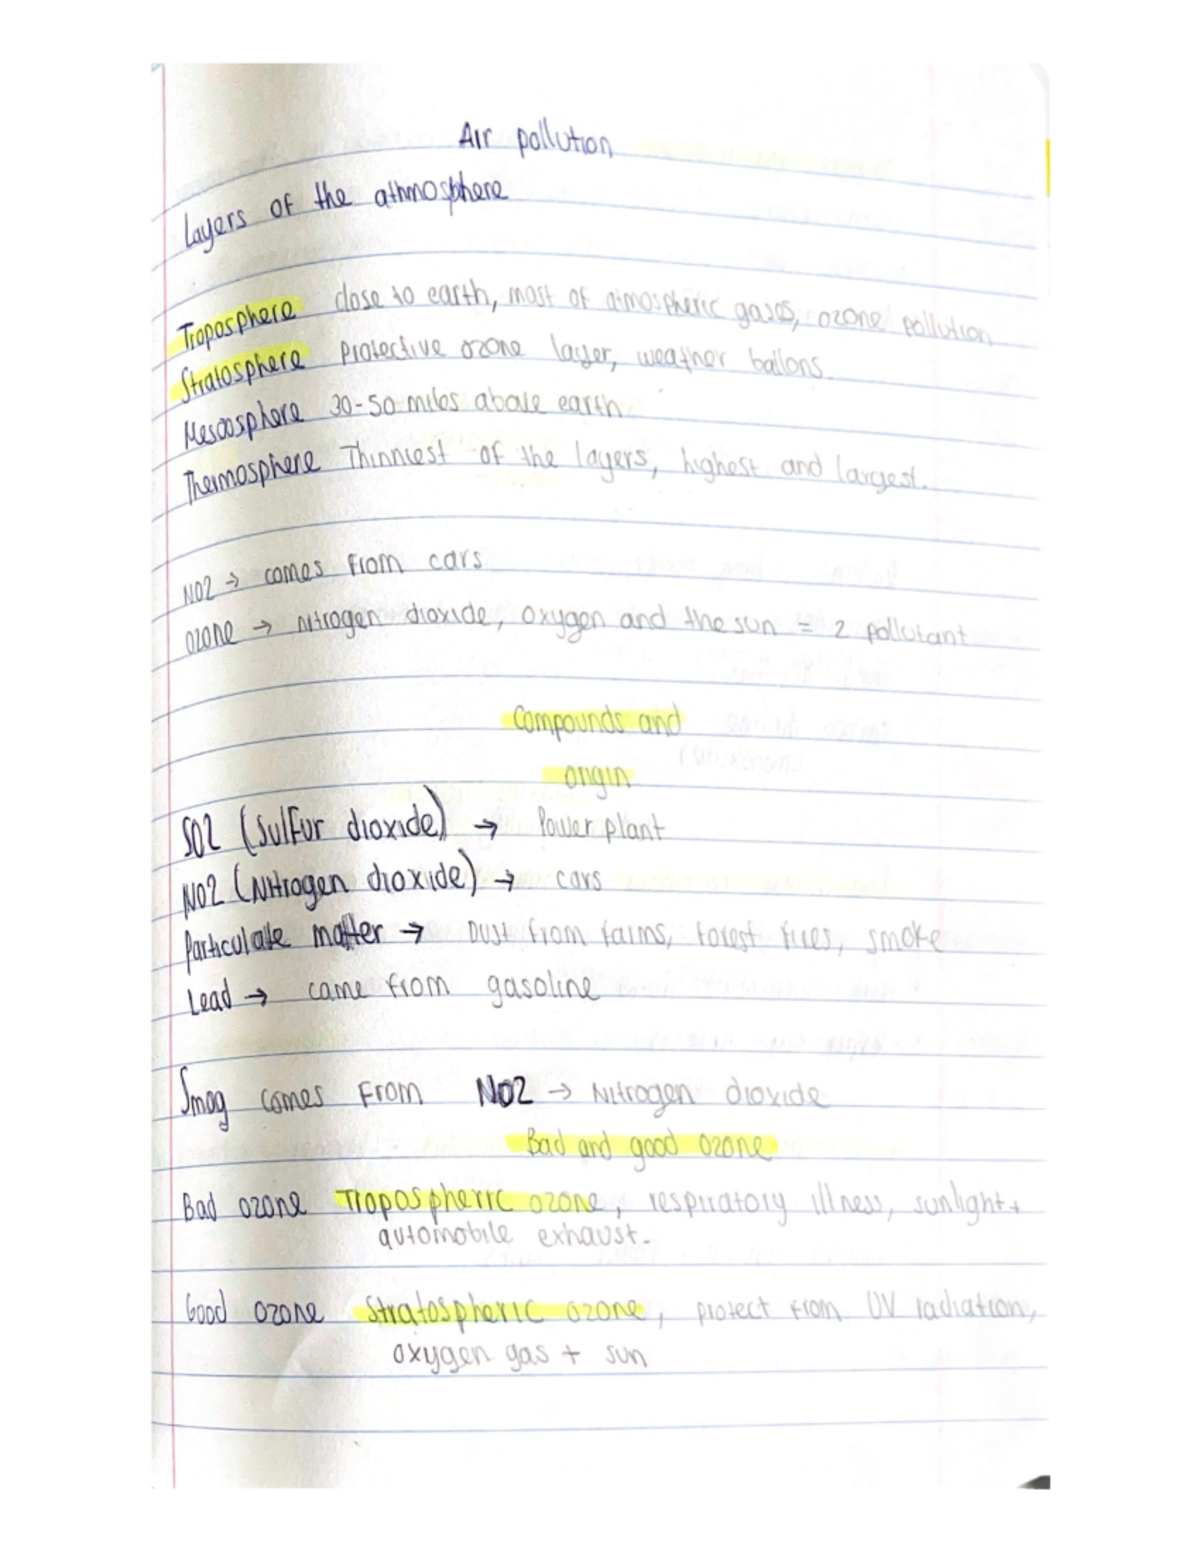 Air pollution
Layers of the athmosphere
Troposphere close to earth, most of atmospheric gases, ozone pollution
Stratosphere protective ozone layer, weather ballons.
Mesosphere 30-50 miles above earth
Thermosphere Thinniest of the layers, highest and largest.
NO2 → comes from cars
ozone → Nitrogen dioxide, oxygen and the sun = 2 pollutant
Compounds and
origin
SO2 (Sulfur dioxide) → Power plant
NO2 (Nitrogen dioxide) → cars
Particulate matter → Dust from farms, forest fires, smoke
Lead → came from gasoline
Smog comes from NO2 → Nitrogen dioxide
Bad and good ozone
Bad ozone Tropospheric ozone, respiratory illness, sunlight +
automobile exhaust.
Good ozone Stratospheric ozone, protect from UV radiation,
oxygen gas + sun